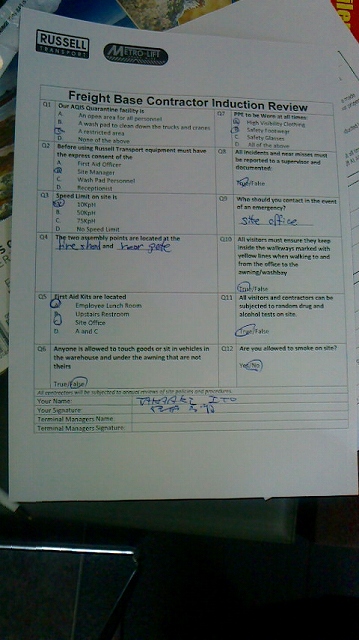 RUSSELL
TRANSPORT
METRO-LIFT
Freight Base Contractor Induction Review
Q1 Our AQIS Quarantine facility is
A. An open area for all personnel
B. A wash pad to clean down the trucks and cranes
C. A restricted area
D. None of the above
Q2 Before using Russell Transport equipment must have the express consent of the
A. First Aid Officer
B. Site Manager
C. Wash Pad Personnel
D. Receptionist
Q3 Speed Limit on site is
A. 10KpH
B. 50KpH
C. 75Kph
D. No Speed Limit
Q4 The two assembly points are located at the
and
Q5 First Aid Kits are located
A. Employee Lunch Room
B. Upstairs Restroom
C. Site Office
D. A and C
Q6 Anyone is allowed to touch goods or sit in vehicles in
the warehouse and under the awning that are not
theirs
True/False
Q7 PPE to be Worn at all times:
A. High Visibility Clothing
B. Safety Footwear
C. Safety Glasses
D. All of the above
Q8 All incidents and near misses must
be reported to a supervisor and
documented:
True/False
Q9 Who should you contact in the event
of an emergency?
site office
Q10 All visitors must ensure they keep
inside the walkways marked with
yellow lines when walking to and
from the office to the
awning/washbay
True/False
Q11 All visitors and contractors can be
subjected to random drug and
alcohol tests on site.
True/False
Q12 Are you allowed to smoke on site?
Yes/No
All contractors will be subjected to annual reviews of site policies and procedures.
Your Name:
Your Signature:
Terminal Managers Name:
Terminal Managers Signature: